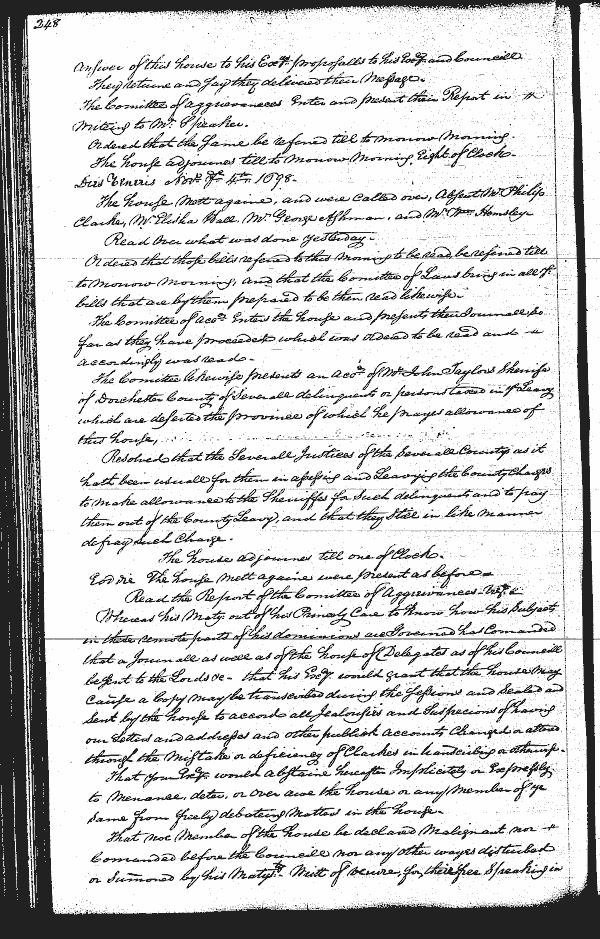 248
Answer of this house to his Excy proposalls to his Excy and Councill
They returne and say they delivered their Message.
The Comittee of Aggreivances Enter and present their Report in
writeing to Mr. Speaker.
Ordered that the same be referred till to morrow Morning.
The house adjournes till to Morrow Morning, Eight of Clock.
Dies Veneris Novr. ye 4th 1698.
The house Mett againe, and were Called over, Absent Mr Philip
Clarke, Mr. Elisha Hall, Mr George Ashman, and Mr. Wm Hemsley
Read Over what was done yesterday.
Ordered that those bills referred to this morning to be read be referred till
to Morrow Morning, and that the Comittee of Laws bring in all ye
bills that are by them prepared to be then read likewise.
The Comittee of Accots Enters the house and presents their Journall, so
far as they have proceeded which was ordered to be read and
accordingly was read.
The Comittee likewise presents an Accot. of Mr John Taylors Sherriffe
of Dorchester County of Severall delinquent or persons taxed in ye Leavy
which are deserted the province of which he prayes allowance of
this house,
Resolved that the Severall Justices of the Severall Countys as it
hath been usuall for them in assessing and Leavying the County Charges
to make allowance to the Sherriffes for such delinquent and to pay
them out of the County Leavy, and that they still in like manner
defray such Charge.
The house adjournes till one of Clock.
Eod die The house mett againe were present as before
Read the Report of the Comittee of Aggreivances Vizt.
Whereas his Maty out of his Princely Care to know how his Subjects
in these remote parts of his dominions are Governed has Comanded
that a Journall as well as of the house of Delegates as of his Councill
be sent to the Lords &c. that his Excy. would grant that the house May
Cause a Copy may be transcribed during the Sessions and Sealed and
Sent by the house to accord all Jealousies and Suspecions of having
our Letters and addresses and other publick accounts Changed or altered
through the Mistake or deficiency of Clarkes in transcribing or otherwise.
That your Excy. would abstaine hereafter Implicitely or Expressly
to Menance, deter, or over awe the house or any Member of ye
same from freely debateing Matters in the house.
That noe Member of the house be declared Malignant nor
Comanded before the Councill nor any other wayes disturbed
or Sumoned by his Matys. Writt of for their free Speaking in